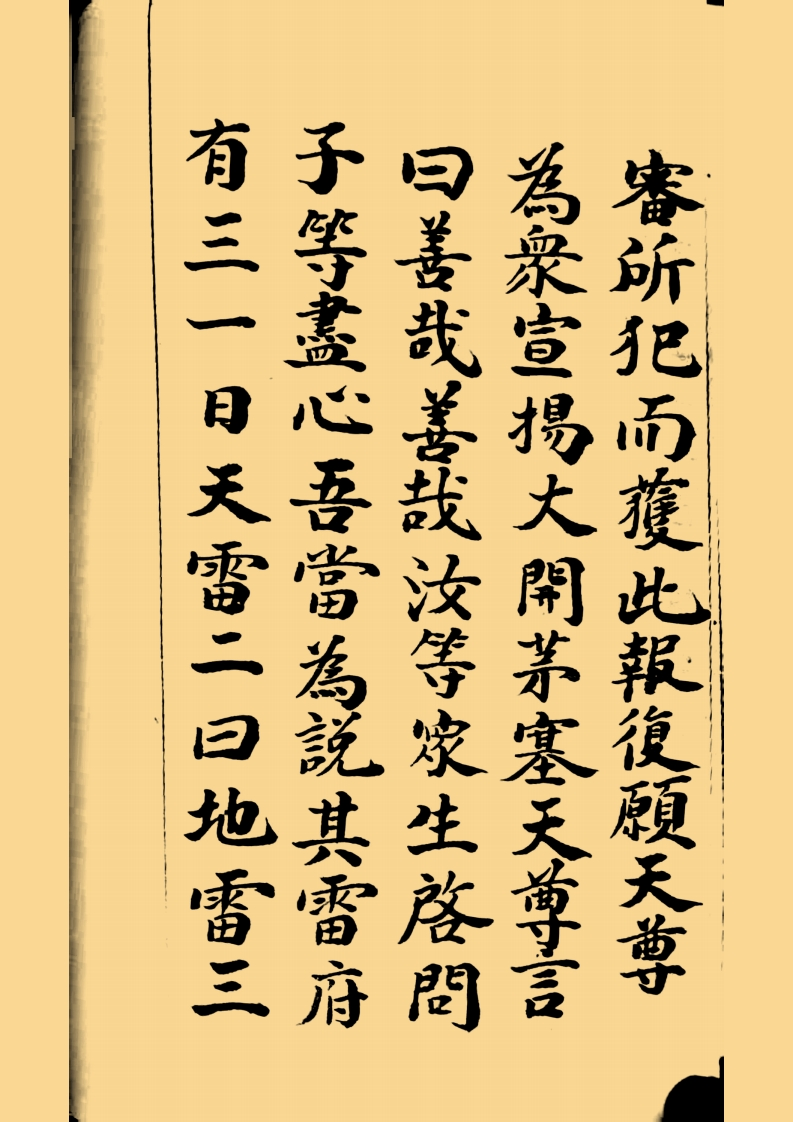 審所犯而獲此報復願天尊
為衆宣揚大開茅塞天尊言
曰善哉善哉汝等眾生啓問
子等盡心吾當為説其雷府
有三一日天雷二曰地雷三